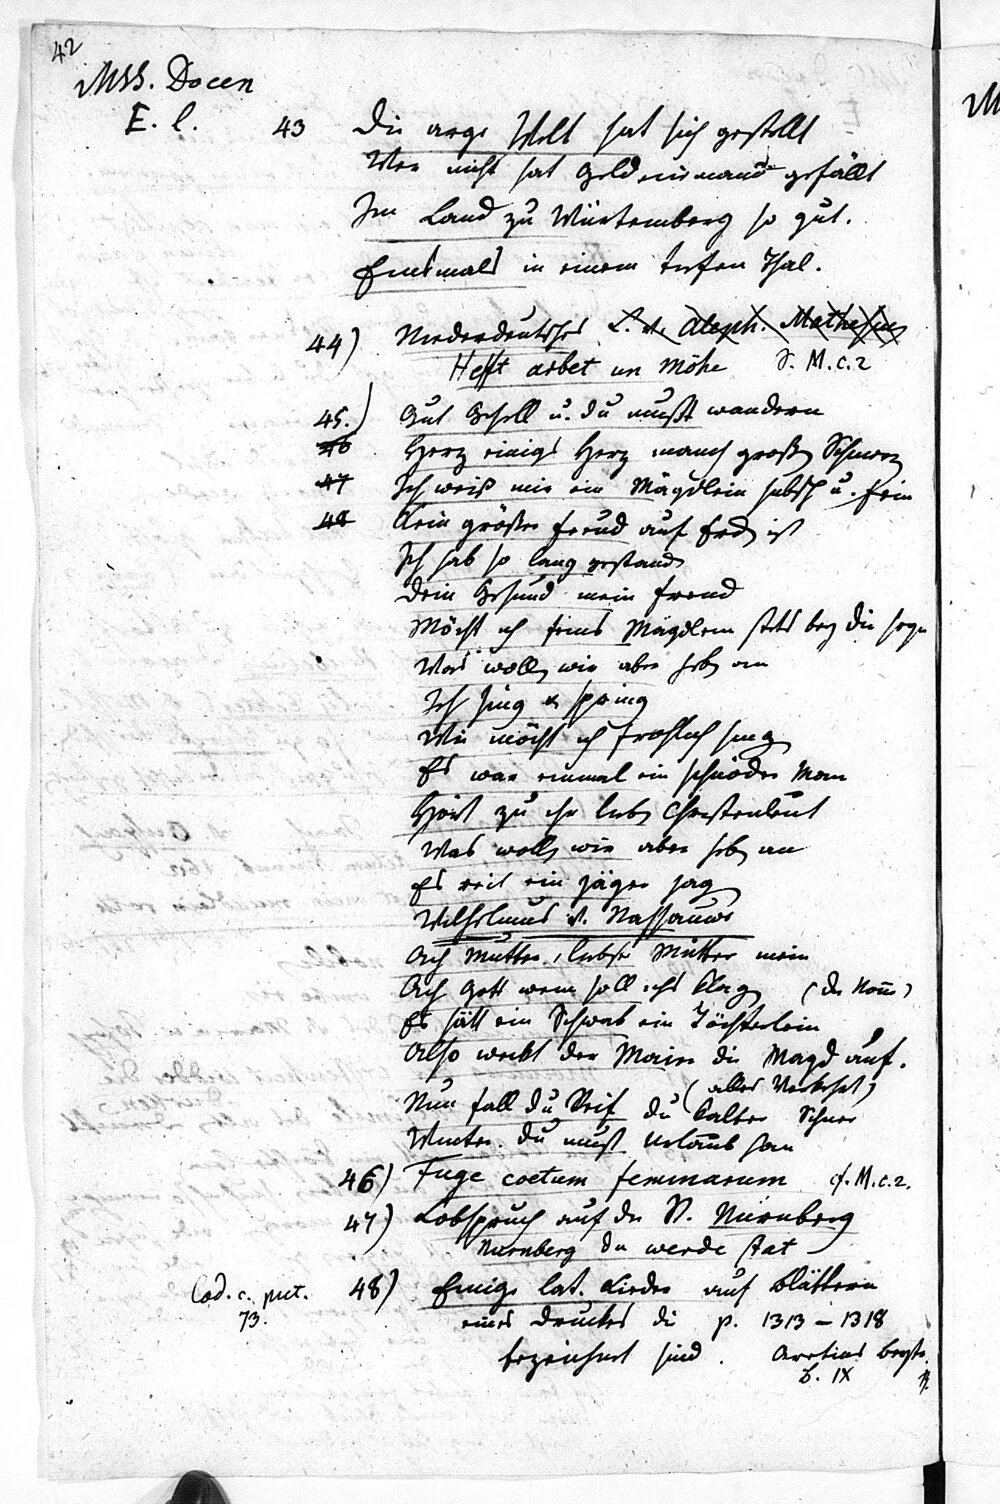 42
MSS. Docen
E. l.
43 Die arge Welt hat sich gestellt
Wer nicht hat Geld niemand gefällt
Im Land zu Würtemberg so gut.
Einsmals in einem tiefen Thal.
44) Niederdeutsches L. v. Aleph. Mathesius
Hefft arbet un Möhe S. M. c. 2
45.) Gut Gesell u. du mußt wandern
46 Herz einigs Herz manch großen Schmerz
47 Ich weiß mir ein Mägdlein hübsch u. fein
48 Kein größer Freud auf Erd ist
Ich hab so lang gestanden
Dein Gesund mein Freud
Möcht ich feins Mägdlein stets bey dir seyn
Was wollen wir aber heben an
Ich sing & spring
Wie möcht ich frohlich singen
Es war einmal ein schnöder Man
Hört zu ihr lieben Christenleut
Was wollen wir aber heben an
Es reit ein Jäger jagen
Wilhelmus v. Nassauwe
Ach Mutter, liebste Mutter mein
Ach Gott wem soll ichs klagen (die Nonn)
Es hätt ein Schwab ein Töchterlein
Also weckt der Maier die Magd auf.
Nun fall du Reif du kalter Schnee
(alles Verkehrt)
Winter du must Urlaub han
46) Fuge coetum feminarum cf. M. c. 2.
47) Lobspruch auf die St. Nürnberg
Nürnberg du werde stat
Cod. c. pict. 48) Einige lat. Lieder auf Blättern
73. eines Druckes die p. 1313 – 1318
bezeichnet sind. Aretins Beytr.
b. IX